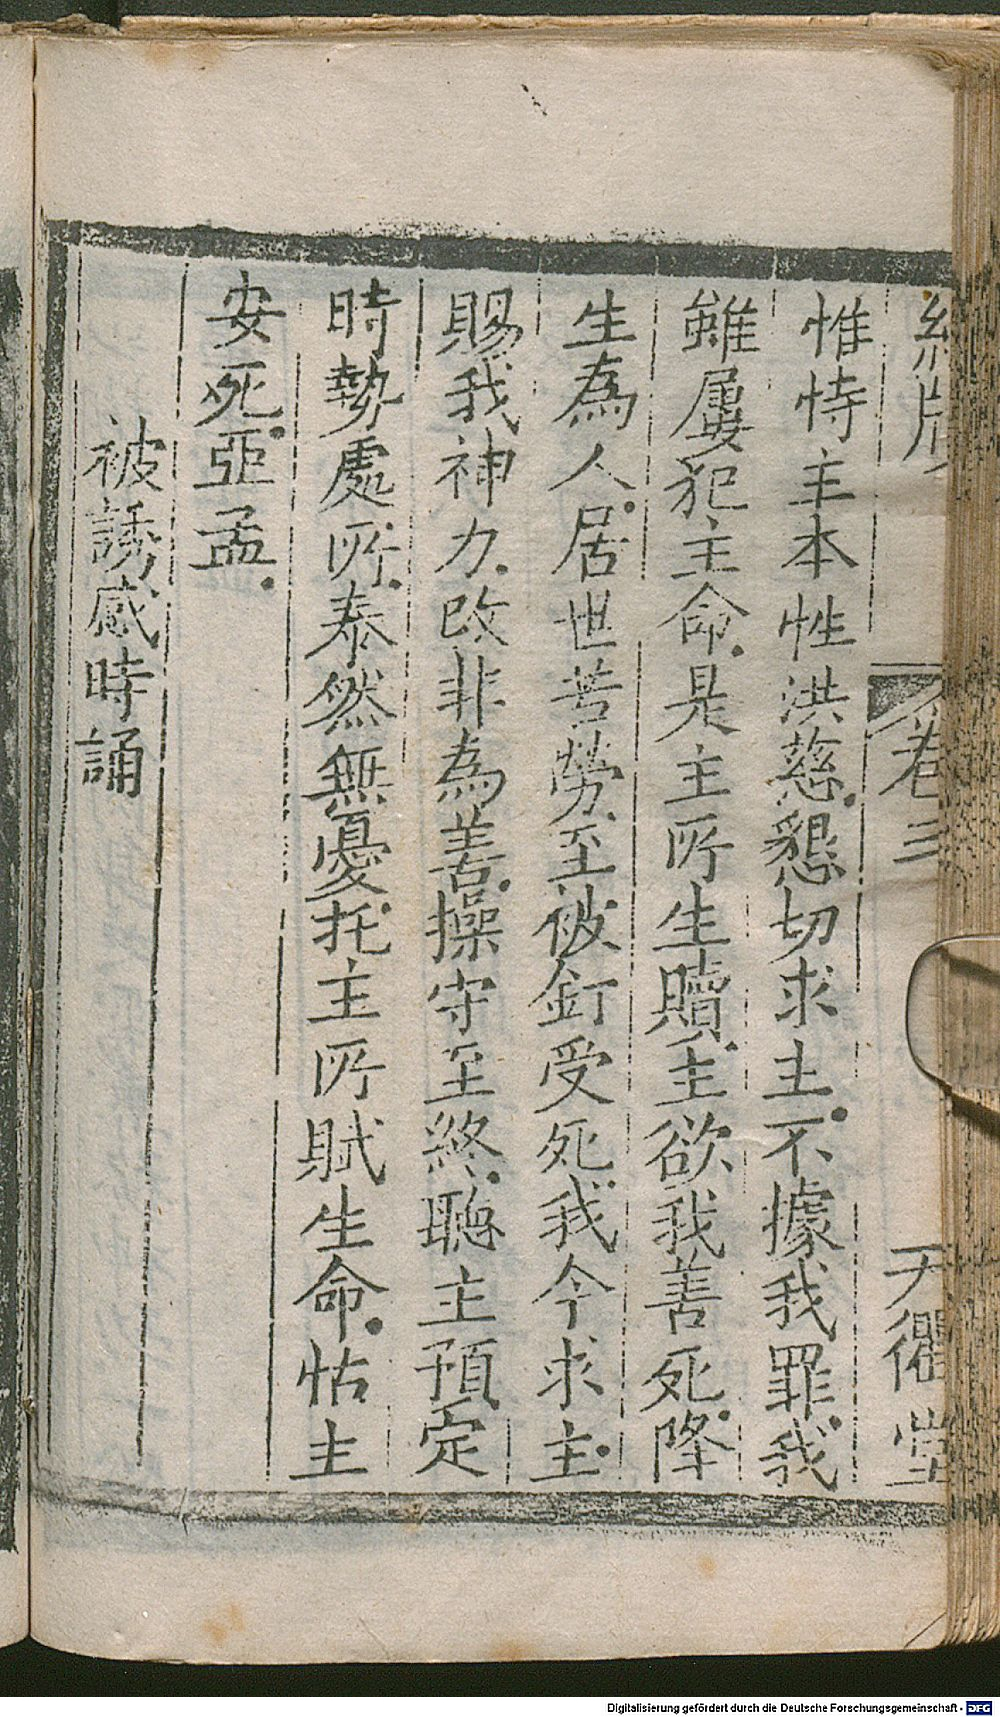 卷三　天衢堂
惟恃主本性洪慈.懇切求主.不據我罪.我
雖屢犯主命.是主所生贖.主欲我善死.降
生為人.居世苦勞.至被釘受死.我今求主.
賜我神力.改非為善.操守至終.聽主預定
時勢處所.泰然無憂.托主所賦生命.怙主
安死.亞孟.
被誘感時誦
Digitalisierung gefördert durch die Deutsche Forschungsgemeinschaft - DFG